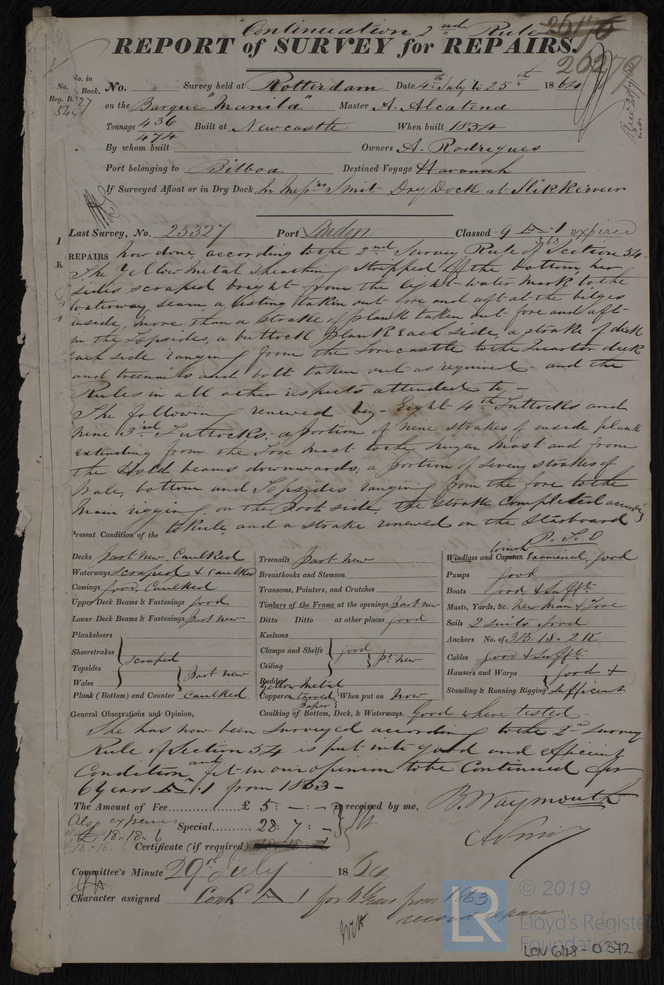 Continuation 2nd Rule
26176
REPORT of SURVEY for REPAIRS.
26276
No. in Book, No. Survey held at Rotterdam Date 4th July to 25th 1864
Reg. B.
on the Barque "Manila" Master A. Alcatena
Tonnage 436 Built at Newcastle When built 1834
474
By whom built Owners A. Rodrigues
Port belonging to Bilboa Destined Voyage Havanah
If Surveyed Afloat or in Dry Dock In Messrs Smit Dry Dock at Slikkerveer
Last Survey, No. 25327 Port London Classed 9 A 1 expired
1863
REPAIRS now done, according to the 2nd Survey Rule of Section 54.
The Yellow Metal Sheathing Stripped off the bottom, her
sides scraped bright from the light water mark to the
waterway seam, a listing taken out fore and aft at the bilges
inside, more than a strake of plank taken out fore and aft
in the topsides, a buttock plank each side, a strake of deck
each side ranging from the forecastle to the Quarter deck
and treenails and bolts taken out as required and the
Rules in all other respects attended to,
The following renewed viz- Eight 4th Futtocks and
nine 3rd Futtocks, a portion of nine strakes of inside plank
extending from the Fore Mast to the Mizen Mast and from
the Hold beams downwards, a portion of seven strakes of
Wale, bottom and Topsides ranging from the fore to the
main rigging, on the Port side, the strake completed according
to Rule, and a strake renewed on the Starboard
P.T.O
Present Condition of the
Decks Part new, Caulked
Waterways scraped & Caulked
Comings good, Caulked
Upper Deck Beams & Fastenings good
Lower Deck Beams & Fastenings part new
Planksheers
Sheerstrakes
Topsides scraped
Wales part new
Plank (Bottom) and Counter Caulked
Treenails part new
Breasthooks and Stemson
Transoms, Pointers, and Crutches
Timbers of the Frame at the openings part new
Ditto Ditto at other places good
Keelsons
Clamps and Shelfs good
Ceiling pt new
Rudder
Yellow Metal
Copper on paper When put on Now
Caulking of Bottom, Deck, & Waterways. Good where tested
Windlass and Capstan Examined, good
Winch
Pumps good
Boats good & sufft
Masts, Yards, &c. new Main & Fore
Sails 2 suits good
Anchors No. of 3 B. 1 S. 2 K
Cables good & Sufft
Hawsers and Warps good &
Standing & Running Rigging Sufficient
General Observations and Opinion,
She has now been surveyed according to the 2nd Survey
Rule of Section 54 is put into good and efficient
Condition and fit in our opinion to be Continued for
6 years A 1 from 1863 -
The Amount of Fee............£ 5 : - : - is received by me, B. Waymouth
Also expenses
Special............ 28 : 7 : -
£ 18. 18. 6
Certificate (if required)
Committee's Minute 29th July 1864
Character assigned Cont A 1 for 6 Years from 1863
© 2019
LR Lloyd's Register
Foundation
LON 648-0372